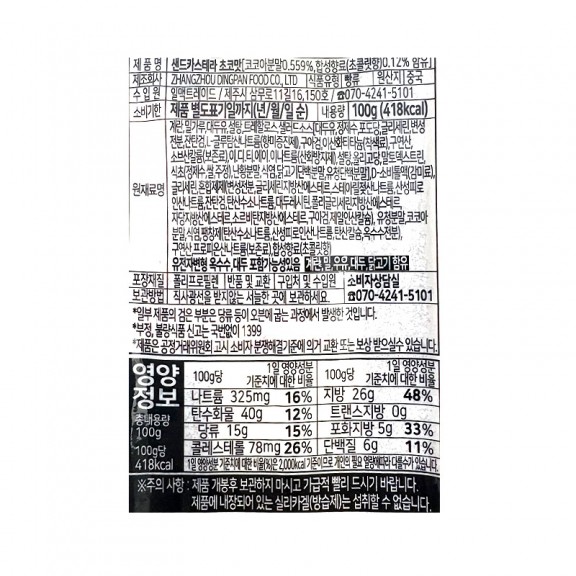 제품명 샌드카스테라 초코맛[코코아분말0.559%,합성향료(초콜릿향)0.12% 함유]
제조회사 ZHANGZHOU DINGPAN FOOD CO., LTD 식품유형 빵류 원산지 중국
수입원 일맥트레이드 / 제주시 삼무로11길16,150호 / ☎070-4241-5101
소비기한 제품 별도표기일까지(년/월/일 순) 내용량 100g (418kcal)
원재료명
계란,밀가루,대두유,설탕,트레할로스,샐러드소스[대두유,정제수,포도당,글리세린,변성
전분,잔탄검,L-글루탐산나트륨(향미증진제),구아검,이산화티타늄(착색료),구연산,
소브산칼륨(보존료),이.디.티.에이.이나트륨(산화방지제),설탕,올리고당,말토덱스트린,
식초(정제수,쌀,주정),난황분말,식염,닭고기단백분말,유청단백분말],D-소비톨액(감미료),
글리세린,혼합제제[변성전분,글리세린지방산에스테르,스테아릴젖산나트륨,산성피로
인산나트륨,잔탄검,탄산수소나트륨,대두레시틴,폴리글리세린지방산에스테르,
자당지방산에스테르,소르비탄지방산에스테르,구아검,제일인산칼슘],유청분말,코코아
분말,식염,팽창제[탄산수소나트륨,산성피로인산나트륨,탄산칼슘,옥수수전분),
구연산,프로피온산나트륨(보존료),합성향료(초콜릿향)
유전자변형 옥수수, 대두 포함가능성있음 계란, 밀, 우유, 대두, 닭고기 함유
포장재질 폴리프로필렌 반품 및 교환 구입처 및 수입원 소비자상담실
보관방법 직사광선을 받지않는 서늘한 곳에 보관하세요. ☎070-4241-5101
*일부 제품의 검은 부분은 당류 등이 오븐에 굽는 과정에서 발생한 것입니다.
*부정, 불량식품 신고는 국번없이 1399
*제품은 공정거래위원회 고시 소비자 분쟁해결기준에 의거 교환 또는 보상 받으실수 있습니다.
영양정보
총내용량 100g
100g당 418kcal
100g당 1일 영양성분 기준치에 대한 비율 100g당 1일 영양성분 기준치에 대한 비율
나트륨 325mg 16% 지방 26g 48%
탄수화물 40g 12% 트랜스지방 0g
당류 15g 15% 포화지방 5g 33%
콜레스테롤 78mg 26% 단백질 6g 11%
1일 영양성분 기준치에 대한 비율(%)은 2,000kcal 기준이므로 개인의 필요 열량에 따라 다를 수가 있습니다.
※주의 사항 : 제품 개봉후 보관하지 마시고 가급적 빨리 드시기 바랍니다.
제품에 내장되어 있는 실리카겔(방습제)는 섭취할 수 없습니다.